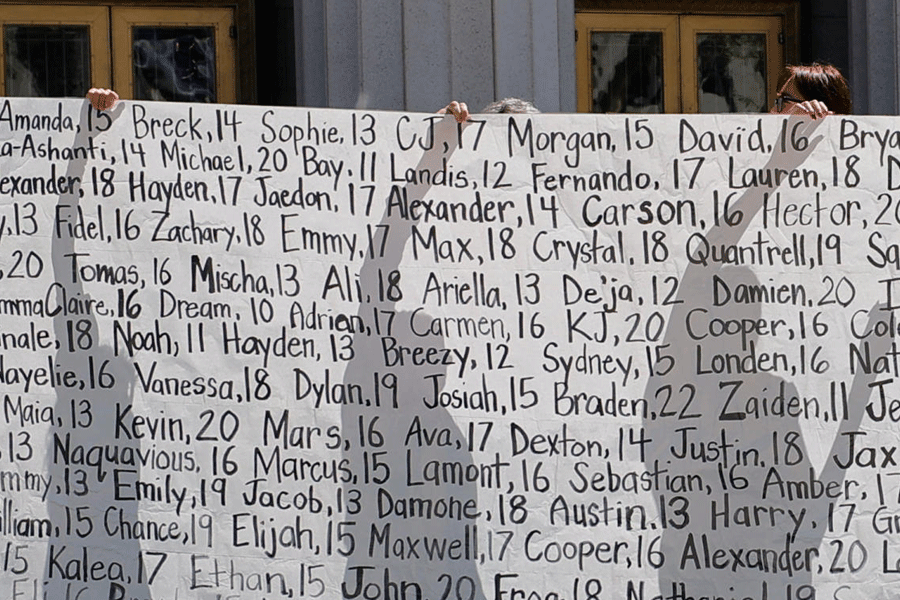 Amanda, 15 Breck, 14 Sophie, 13 CJ, 17 Morgan, 15 David, 16 Brya
a-Ashanti, 14 Michael, 20 Bay, 11 Landis, 12 Fernando, 17 Lauren, 18 D
exander, 18 Hayden, 17 Jaedon, 17 Alexander, 14 Carson, 16 Hector, 20
y, 13 Fidel, 16 Zachary, 18 Emmy, 17 Max, 18 Crystal, 18 Quantrell, 19 Sa
, 20 Tomas, 16 Mischa, 13 Ali, 18 Ariella, 13 De'ja, 12 Damien, 20
mmaClaire, 16 Dream, 10 Adrien, 17 Carmen, 16 KJ, 20 Cooper, 16 Col
nale, 18 Noah, 11 Hayden, 13 Breezy, 12 Sydney, 15 Londen, 16 Nat
Nayelie, 16 Vanessa, 18 Dylan, 19 Josiah, 15 Braden, 22 Zaiden, 11 Je
Maia, 13 Kevin, 20 Mars, 16 Ava, 17 Dexton, 14 Justin, 18 Jax
, 13 Naquavious, 16 Marcus, 15 Lamont, 16 Sebastian, 16 Amber, 17
mmy, 13 Emily, 19 Jacob, 13 Damone, 18 Austin, 13 Harry, 17 Gr
illiam, 15 Chance, 19 Elijah, 15 Maxwell, 17 Cooper, 16 Alexander, 20 L
15 Kalea, 17 Ethan, 15 John, 20 18 Nathaniel, 19 S